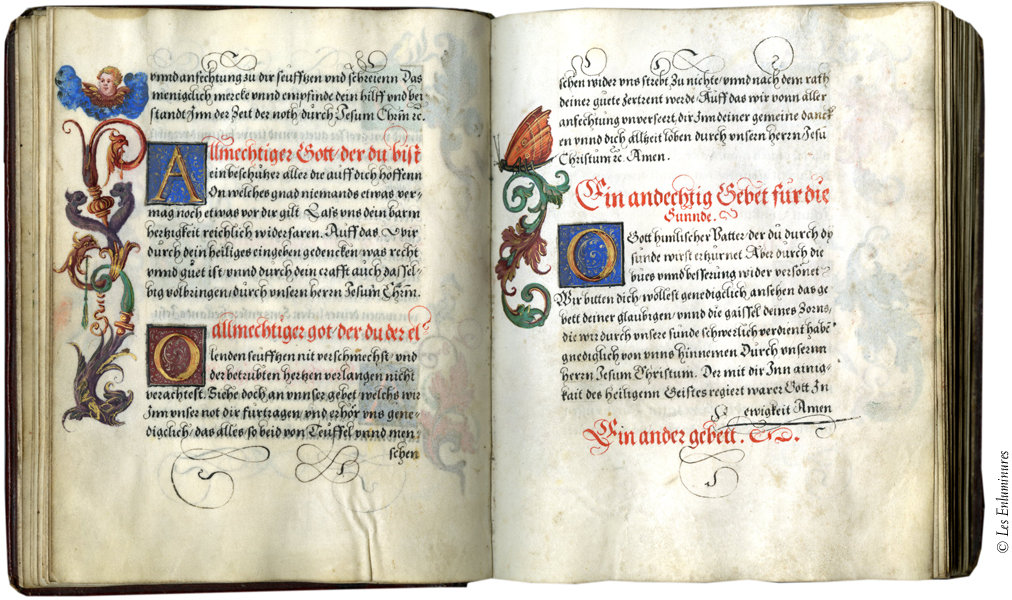 vnnd anfechtung zu dir seuffzen vnd schreienn Das
meniglich mercke vnnd empfinde dein hilff vnd bei-
standt Inn der Zeit der noth durch Jesum Chrm ꝛc.
Allmechtiger Gott / der du bist
ein beschützer aller die auff dich hoffenn
On welches gnad niemands etwas ver-
mag noch etwas vor dir gilt Lass vns dein barm
hertzigkeit reichlich widerfaren. Auff das Wir
durch dein heiliges eingeben gedencken was recht
vnnd guet ist vnnd durch dein crafft auch dasselb-
big volbringen / durch vnsern herrn Jesum Chrm.
O allmechtiger got / der du der el
lenden seufftzen nit verschmechst / vnd
der betrubten hertzen verlangen nicht
verachtest. Siehe doch an vnnser gebet / welchs wir
Inn vnser not dir furtragen vnd erhör vns gene-
diglich / das alles so beid von Teuffel vnnd men-
schen
schen wider vns strebt Zu nichte / vnnd nach dem rath
deiner guete Zertrent werde / Auff das wir vonn aller
anfechtung vnversert / dir Inn deiner gemeine danck
en vnnd dich allzeit loben durch vnsern herrn Jesu
Christum ꝛc Amen.
Ein andechtig Gebet fur die
Sunnde.
O Gott himlischer Vatter / der du durch dy
sunde wirst erzurnet Aber durch die
bues vnnd besserung wider versonet
Wir bitten dich / wöllest genediglich ansehen das ge
bett deiner glaubigen / vnnd die gaissel deines Zorns,
die wir durch vnsere sunde schwerlich verdient habe
gnediglich von vnns hinnemen Durch vnsernn
herrn Jesum Christum. Der mit dir Inn ainig-
kait des heiligenn Geistes regiert warer Gott Zu
ewigkeit Amen
Ein ander gebett.
© Les Enluminures